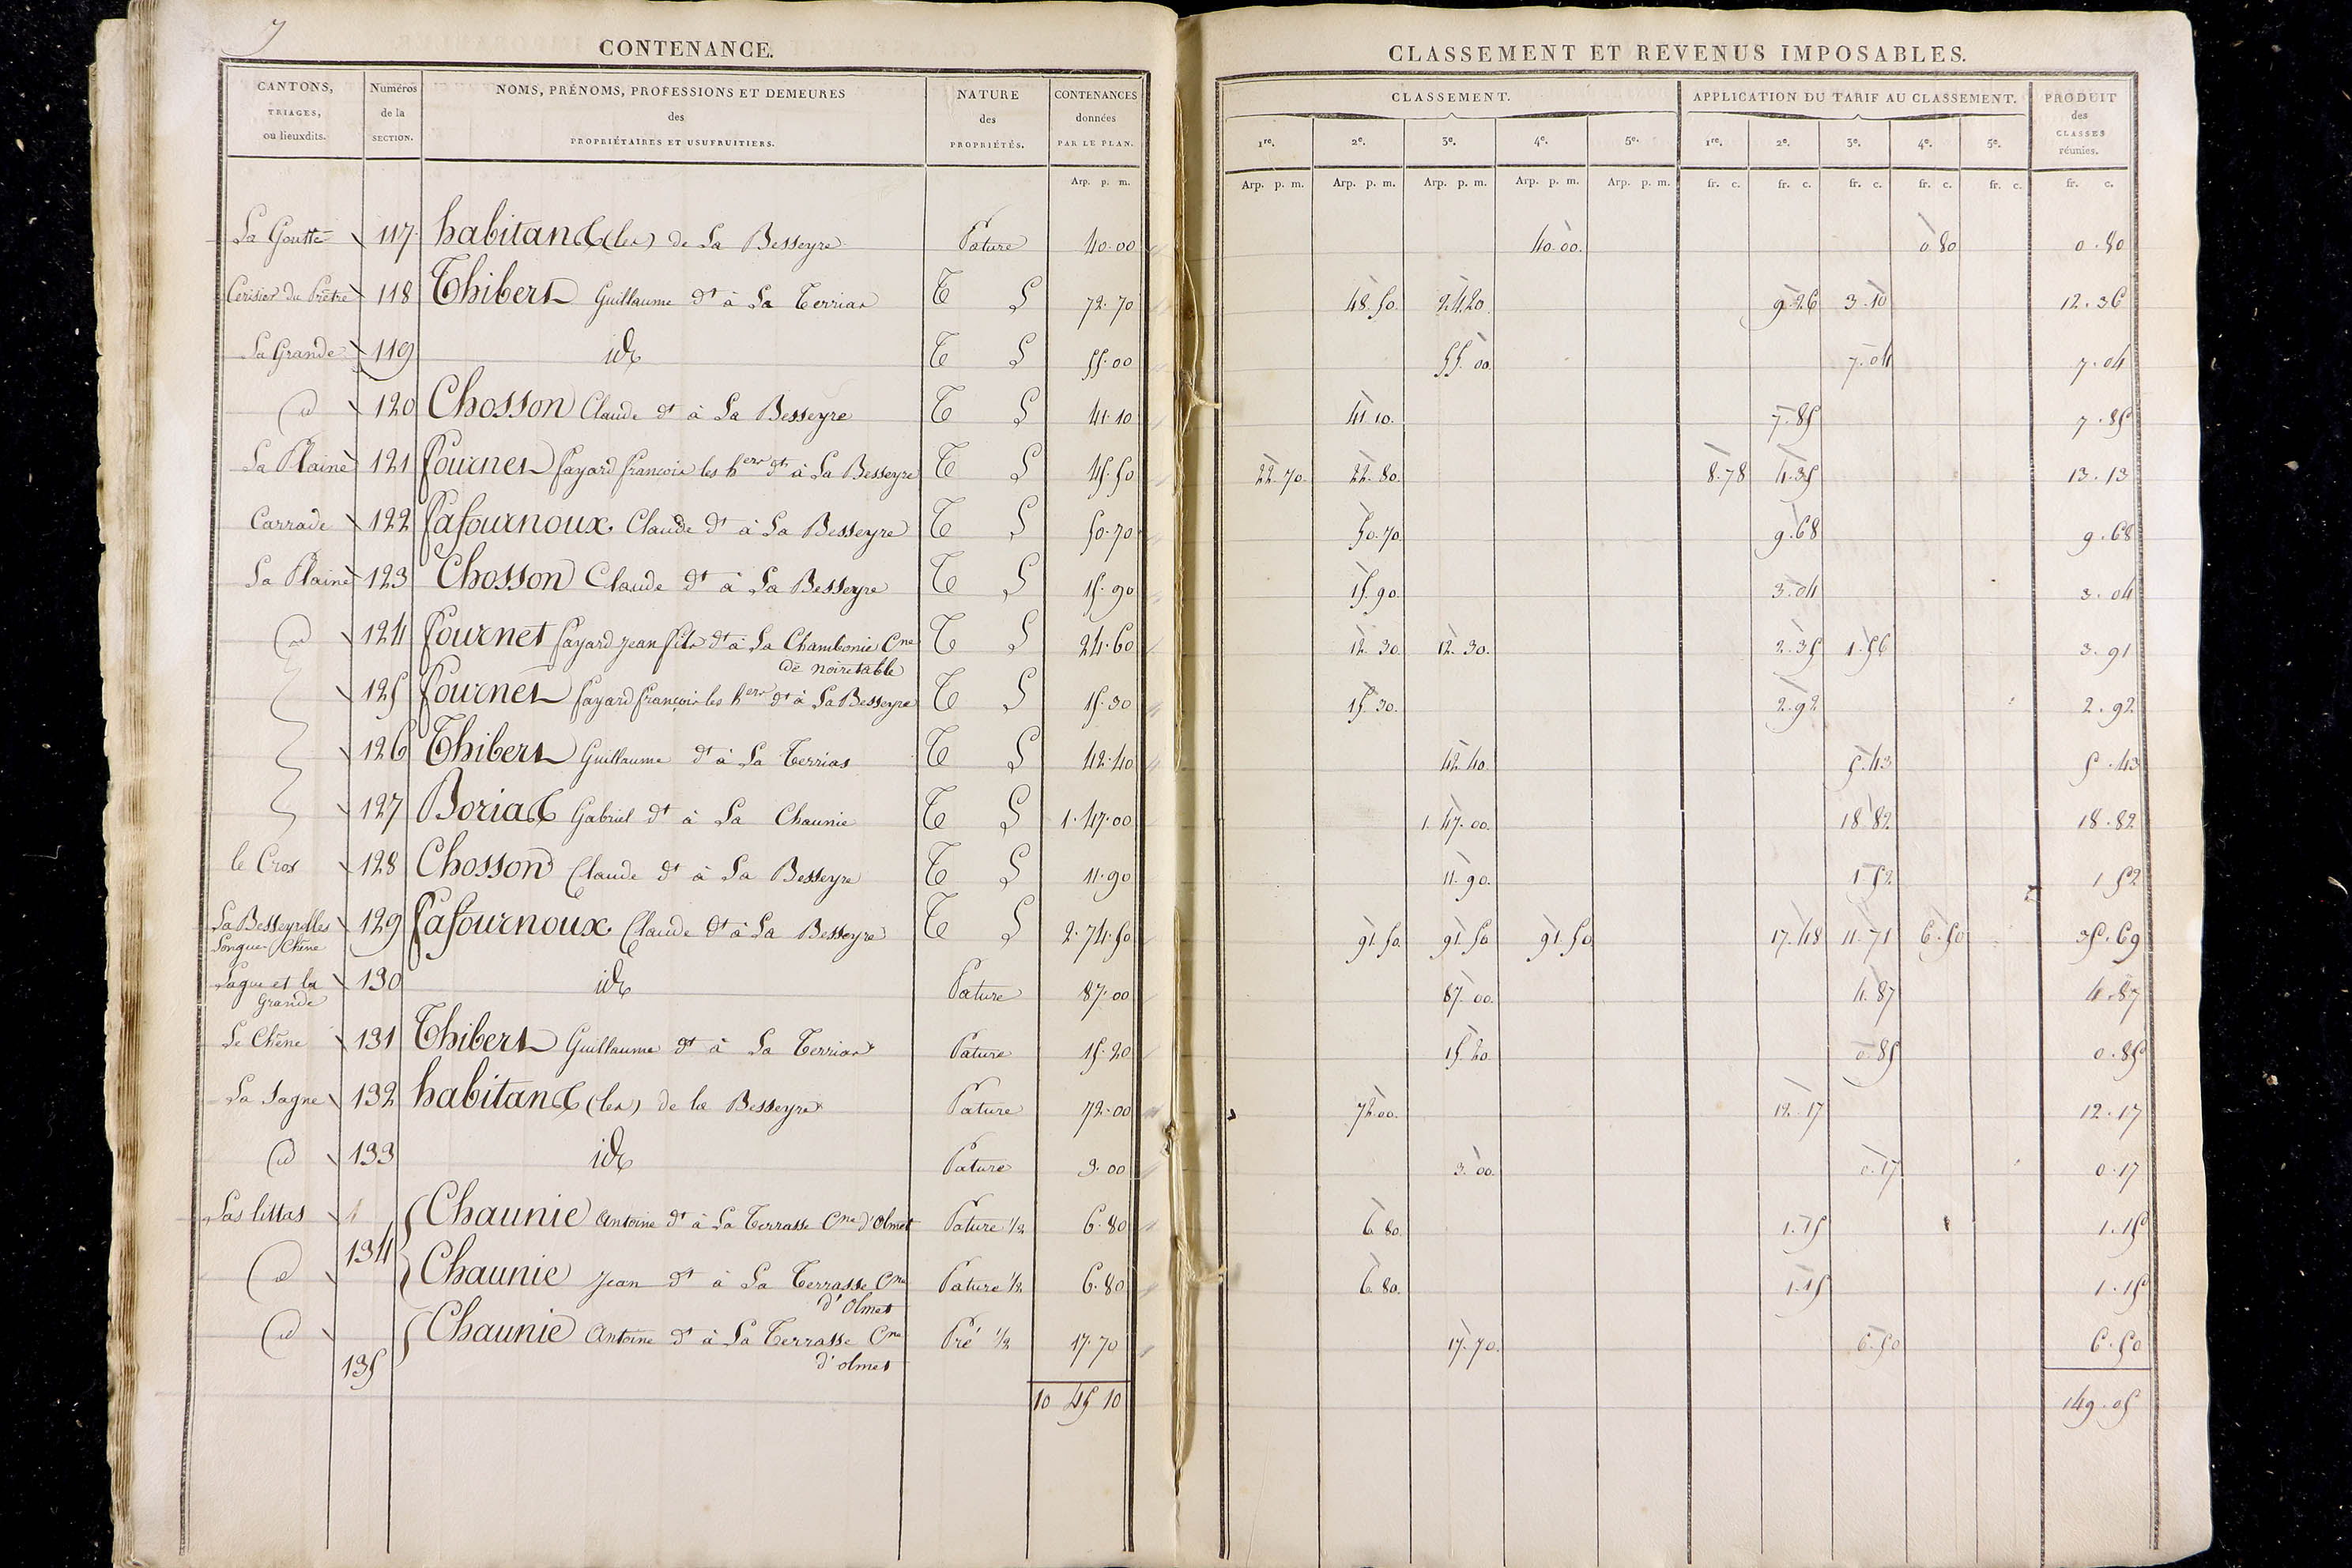 7
CONTENANCE.
CANTONS, TRIAGES, ou lieuxdits.
Numéros de la SECTION.
NOMS, PRÉNOMS, PROFESSIONS ET DEMEURES des PROPRIÉTAIRES ET USUFRUITIERS.
NATURE des PROPRIÉTÉS.
CONTENANCES données PAR LE PLAN.
Arp. p. m.
CLASSEMENT ET REVENUS IMPOSABLES.
CLASSEMENT.
APPLICATION DU TARIF AU CLASSEMENT.
PRODUIT des CLASSES réunies.
1re. 2e. 3e. 4e. 5e. 1re. 2e. 3e. 4e. 5e.
Arp. p. m. Arp. p. m. Arp. p. m. Arp. p. m. Arp. p. m. fr. c. fr. c. fr. c. fr. c. fr. c. fr. c.
La Goutte 117 habitants (les) de La Besseyre Pature 40.00 40.00. 0.80 0.80
Cerisier du Prêtre 118 Thibert Guillaume dt à La Terrias T L 72.70 48.50. 24.20. 9.26 3.10 12.36
La Grande 119 id T L 55.00 55.00. 7.04 7.04
id 120 Chosson Claude dt à La Besseyre T L 41.10 41.10. 7.85 7.85
La Plaine 121 fournet fayard françois les hers dts à La Besseyre T L 45.50 22.70. 22.80. 8.78 4.35 13.13
Carrade 122 Lafournoux Claude dt à La Besseyre T L 50.70 50.70. 9.68 9.68
La Plaine 123 Chosson Claude dt à La Besseyre T L 15.90 15.90. 3.04 3.04
id 124 fournet fayard Jean fils dt à La Chambonie Cne T L 24.60 12.30. 12.30. 2.35 1.56 3.91
de noiretable
125 fournet fayard françois les hers dt à La Besseyre T L 15.30 15.30. 2.92 2.92
126 Thibert Guillaume dt à La Terrias T L 42.40 42.40. 5.43 5.43
127 Boriat Gabriel dt à La Chaunie T L 1.47.00 1.47.00. 18.82 18.82
le Cros 128 Chosson Claude dt à La Besseyre T L 11.90 11.90. 1.52 1.52
La Besseyrolles 129 Lafournoux Claude dt à La Besseyre T L 2.74.50 91.50. 91.50 91.50 17.48 11.71 6.50 35.69
Longue Chêne
Sagne et la 130 id Pature 87.00 87.00. 4.87 4.87
Grande
Le Chêne 131 Thibert Guillaume dt à La Terrias Pature 15.20 15.20. 0.85 0.85
La Sagne 132 habitants (les) de la Besseyre Pature 72.00 72.00. 12.17 12.17
id 133 id Pature 3.00 3.00. 0.17 0.17
Las littas 134 Chaunie Antoine dt à La Terrasse Cne d'Olmet Pature 1/2 6.80 6.80. 1.15 1.15
id Chaunie Jean dt à La Terrasse Cne Pature 1/2 6.80 6.80. 1.15 1.15
d'Olmet
id 135 Chaunie Antoine dt à La Terrasse Cne Pré 1/2 17.70 17.70. 6.50 6.50
d'olmet
10 45 10 149.05